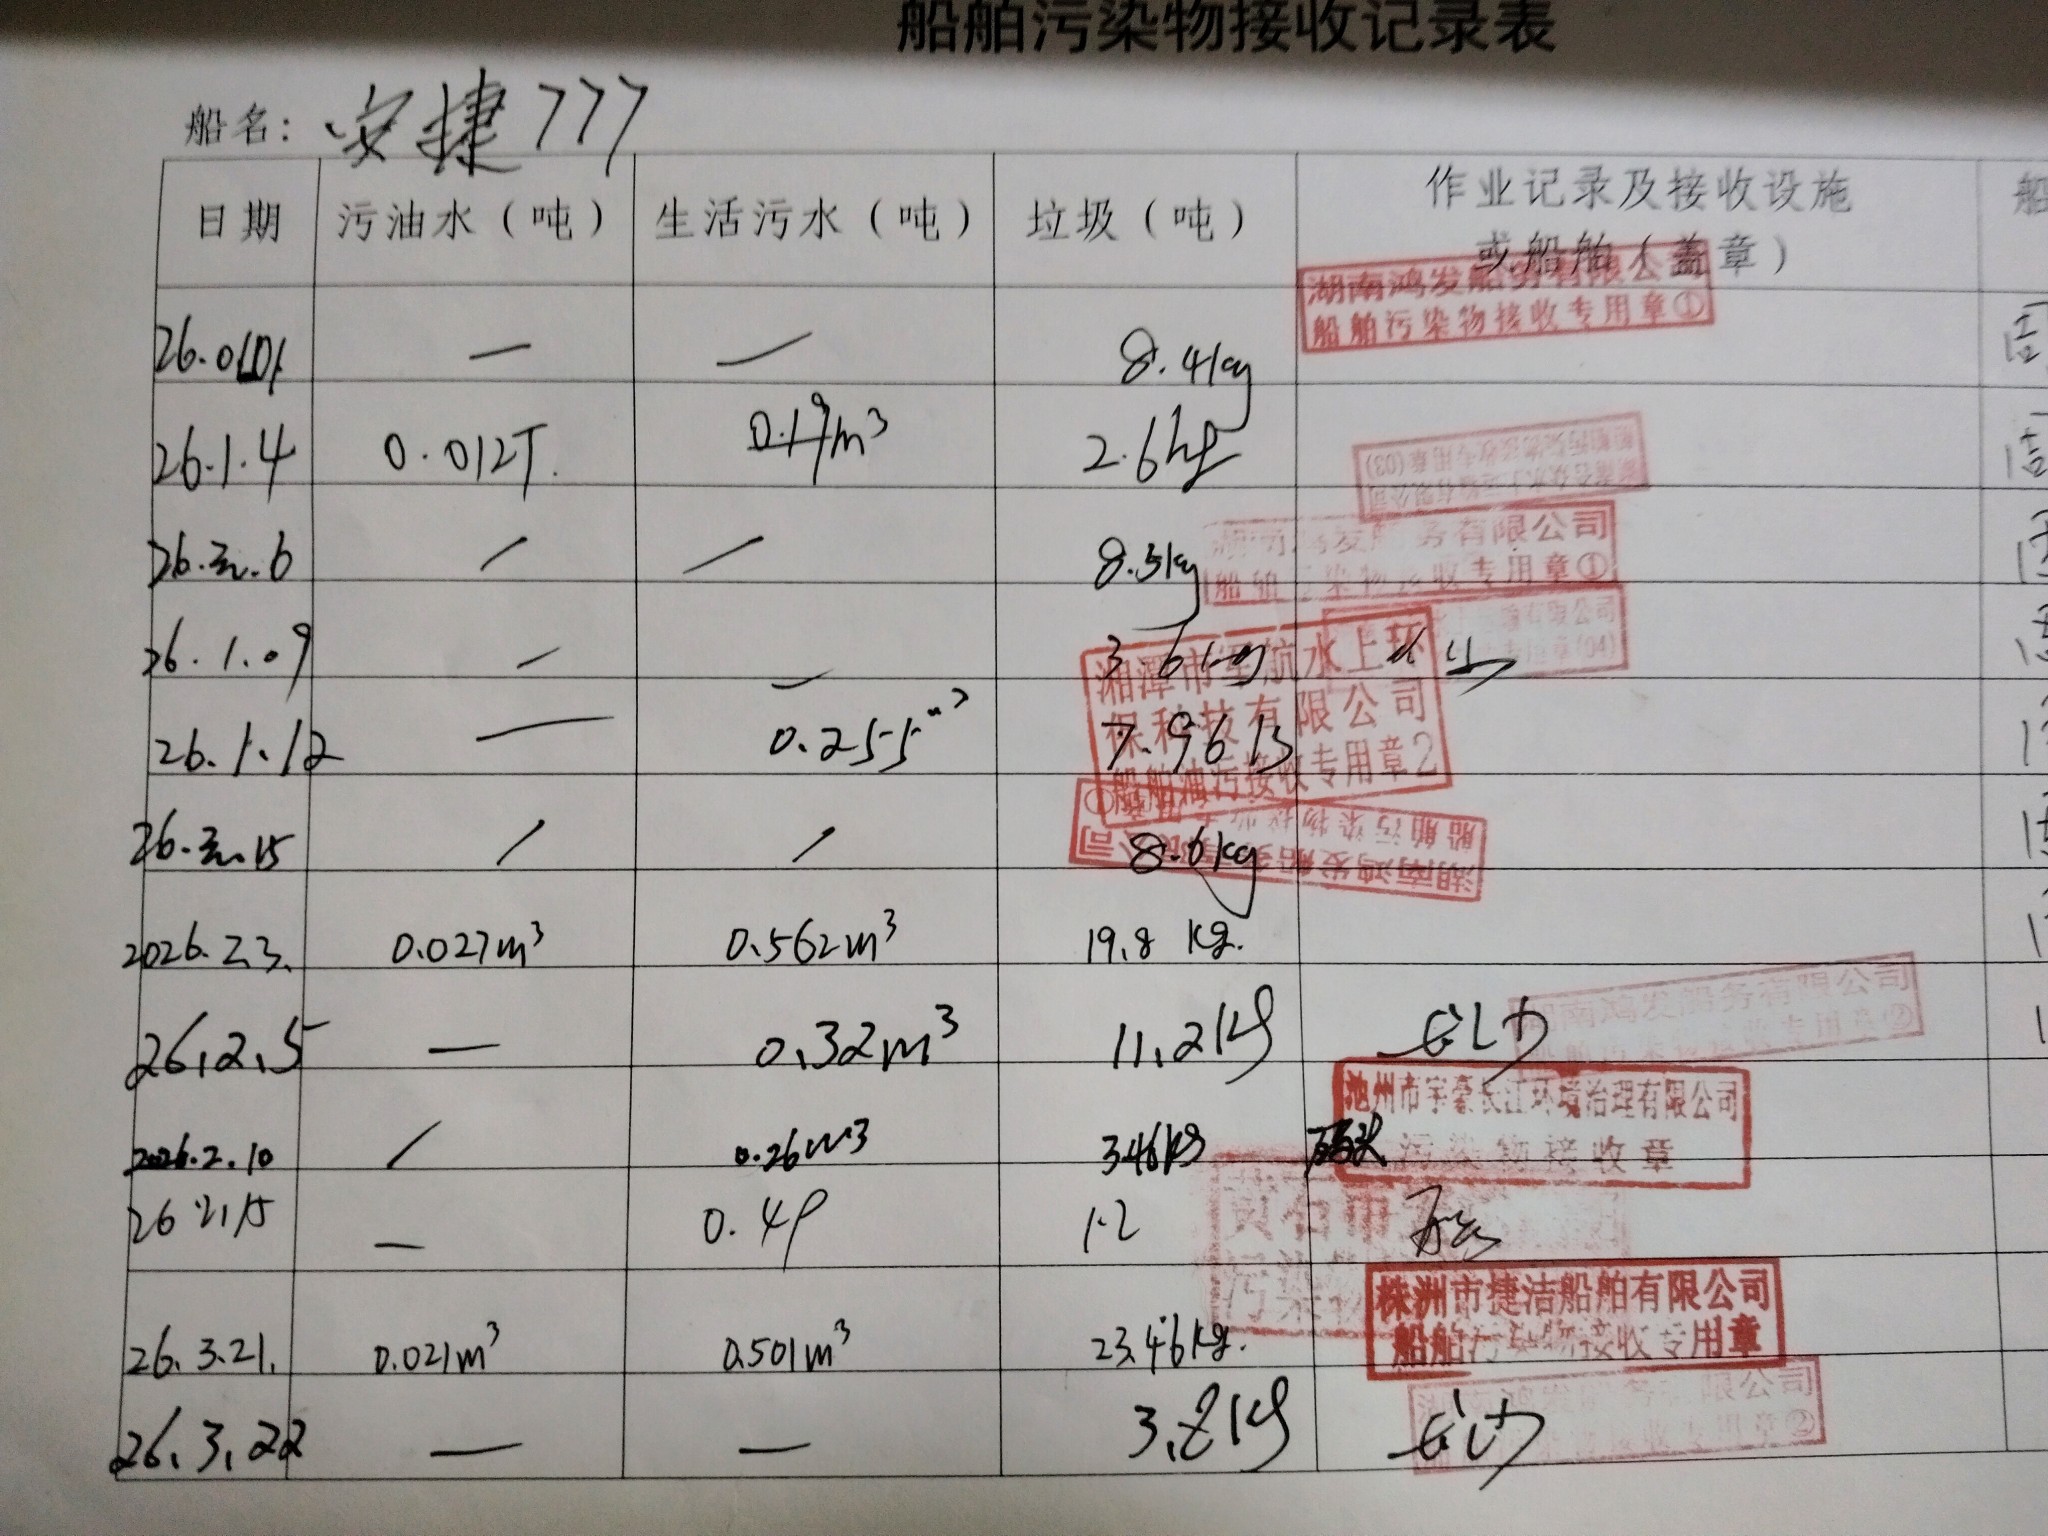 船舶污染物接收记录表
船名: 安捷777
日期 污油水（吨） 生活污水（吨） 垃圾（吨） 作业记录及接收设施或船舶（盖章） 船
湖南鸿发船务有限公司
船舶污染物接收专用章①
26.0101 — — 8.4kg
26.1.4 0.012T. 0.19m³ 2.6kg
船舶污染物接收专用章(03)
26.元.6 / / 8.3kg
湖南鸿发船务有限公司
船舶污染物接收专用章①
26.1.09 — — 3.6kg
有限公司
专用章(04)
26.1.12 — 0.255m³ 7.96
湘潭市军航水上环
保科技有限公司
船舶油污接收专用章2
26.元.15 / / 8.6kg
湖南鸿发船务有限公司
船舶污染物接收专用章①
2026.2.3. 0.027m³ 0.562m³ 19.8 kg.
26.2.5 — 0.32m³ 11.2kg 长沙
湖南鸿发船务有限公司
船舶污染物接收专用章②
2026.2.10 / 0.26m3 3.46kg 码头
池州市宇豪长江环境治理有限公司
污染物接收章
26 2.15 — 0.49 1.2
黄石市
污染物
26.3.21. 0.021m³ 0.501m³ 23.46kg.
株洲市捷洁船舶有限公司
船舶污染物接收专用章
26.3.22 — — 3.8kg 长沙
湖南鸿发船务有限公司
船舶污染物接收专用章②